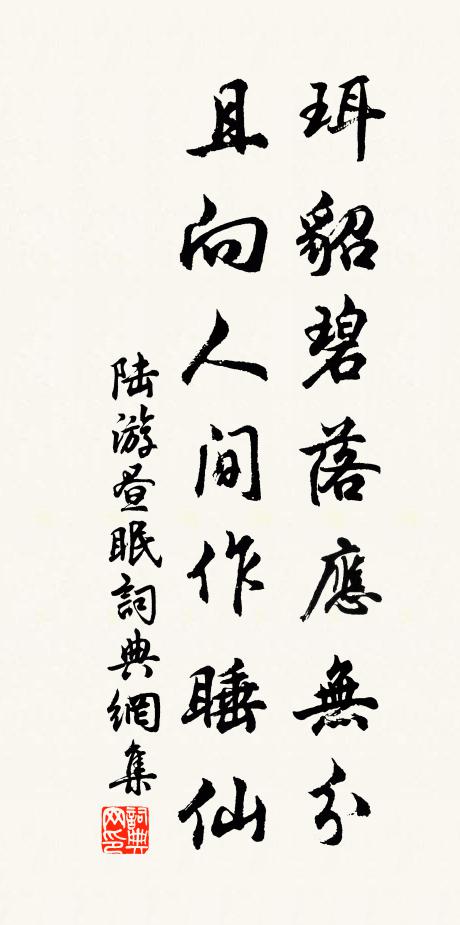 珥貂碧落應無分
且向人间作睡仙
陆游昼眠詞典網集
詞典网印